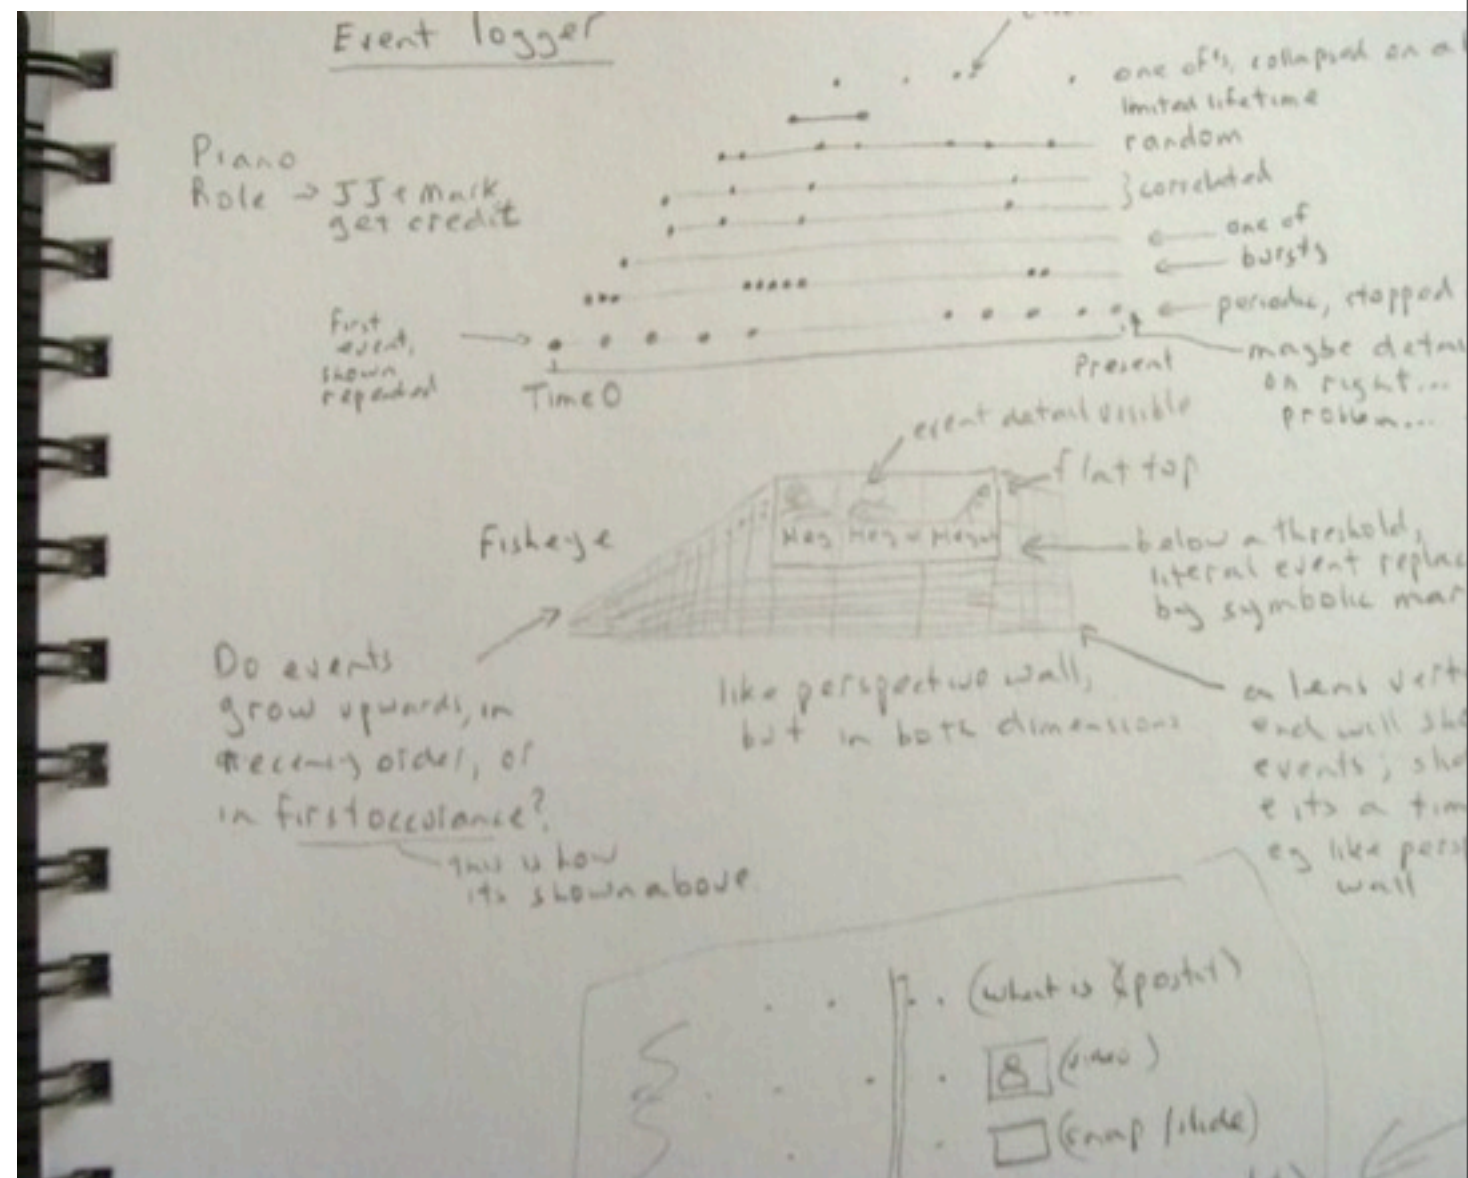 Event logger
one of's, collapsed on a
limited lifetime
random
Piano
Role → JJ + Mark
get credit
} correlated
one of
bursts
periodic, stopped
first
event,
shown
repeated
Time 0
Present
maybe detai
on right...
problem...
event detail visible
flat top
Fisheye
Hey Hey Hey
below a threshold,
literal event replac
by symbolic mar
Do events
grow upwards, in
recency order, or
in first occurance?
this is how
its shown above
like perspective wall,
but in both dimensions
a lens vert
end will sho
events; sho
e its a tim
eg like persp
wall
(what is postit)
(video)
(snap / slide)